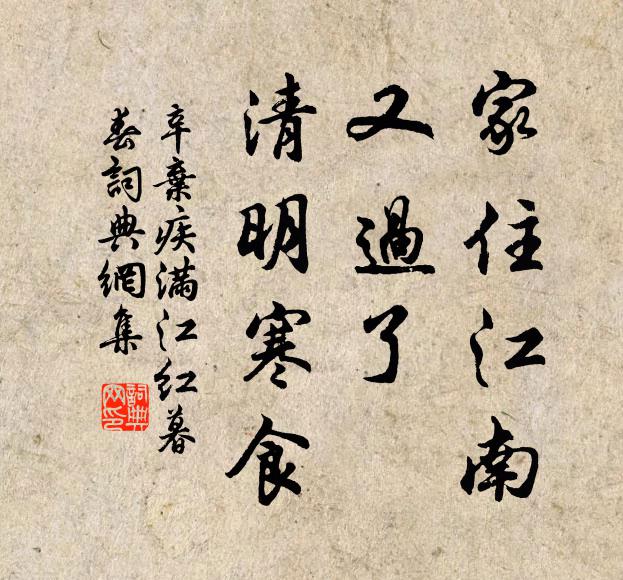 家住江南
又過了
清明寒食
辛棄疾滿江紅暮
春詞典網集
詞典
网印